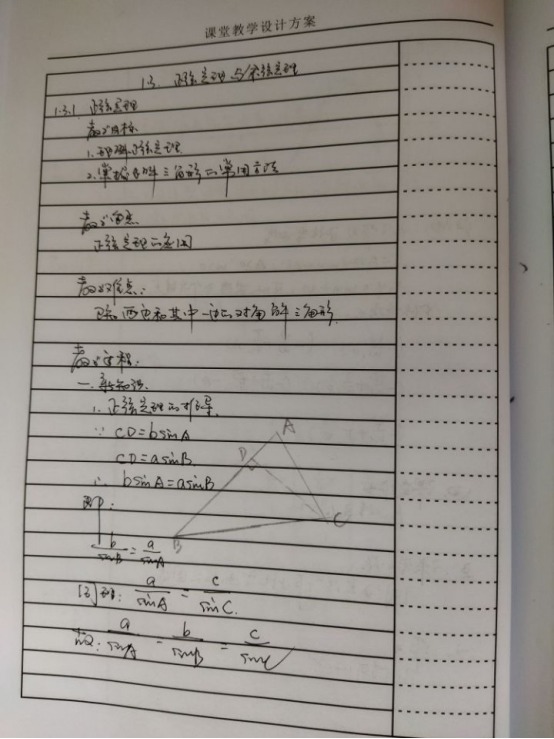 课堂教学设计方案
1.3. 正弦定理与余弦定理
1.3.1. 正弦定理
教学目标
1. 理解正弦定理
2. 掌握 解三角形的常用方法
教学重点
正弦定理的应用
教学难点:
已知两边和其中一边的对角解三角形.
教学过程:
一. 新知识.
1. 正弦定理的推导.
∵ CD=bsinA
CD=asinB.
∴ bsinA=asinB
即:
b/sinB = a/sinA
同理: a/sinA = c/sinC.
故: a/sinA = b/sinB = c/sinC
A
D
B
C